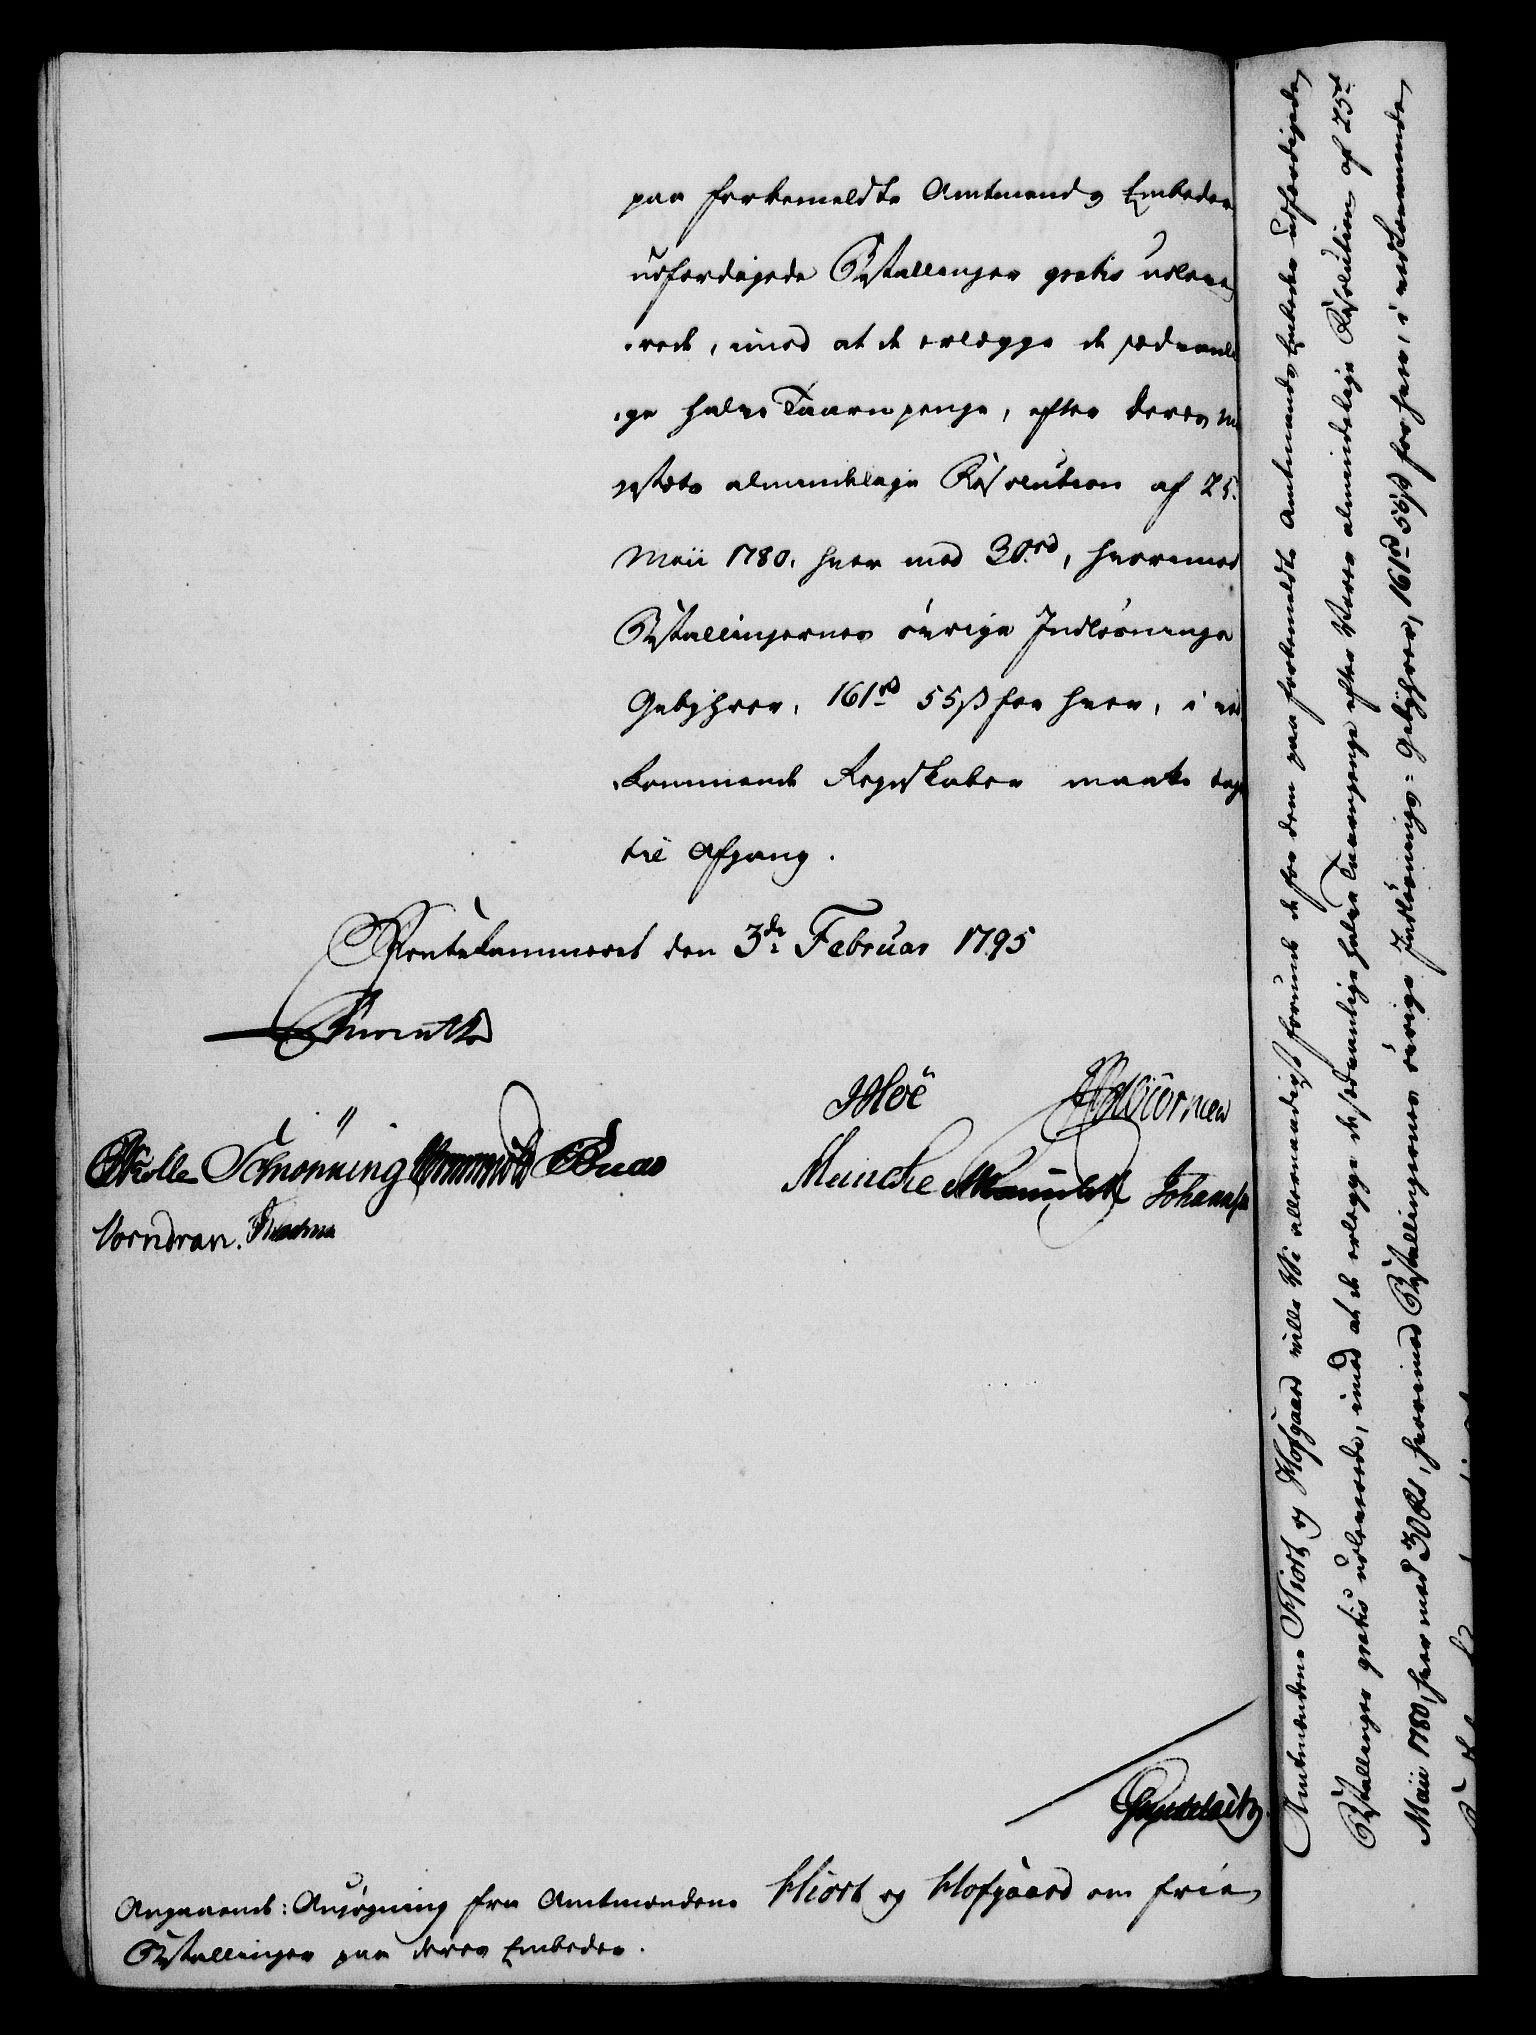 paa forbemeldte Amtmands Embeder
udfærdigede Bestallinger gratis udleve
„rede, imod at de erlægge de sædvanli
„ge halve Taarnpenge, efter Deres Ma
jestæts almindelige Resolution af 25.
Maii 1780. hver med 30 rd, hvorimod
Bestallingernes øvrige Indløsnings
Gebyhrer, 161 rd 55 ß for hver, i ved
„kommende Regnskaber maatte tages
til Afgang.
Rentekammeret den 3de Februar 1795
Schønning
Hoë
Müncke
Johannsen
Vorndran.
Angaaende: Ansøgning fra Amtmændene Hiort og Hofgaard om frie
Bestallinger paa deres Embeder.
Amtmændene Hiort og Hofgaard ville Vi allernaadigst forunde de for dem paa forbemeldte Amtmands Embeder udfærdigede
Bestallinger gratis udleverede, imod at de erlægge de sædvanlige halve Taarnpenge efter Vores almindelige Resolution af 25de
Maii 1780, hver med 30 Rd, hvorimod Bestallingernes øvrige Indløsnings-Gebyhrer, 161 rd 55 ß for hver, i vedkommende